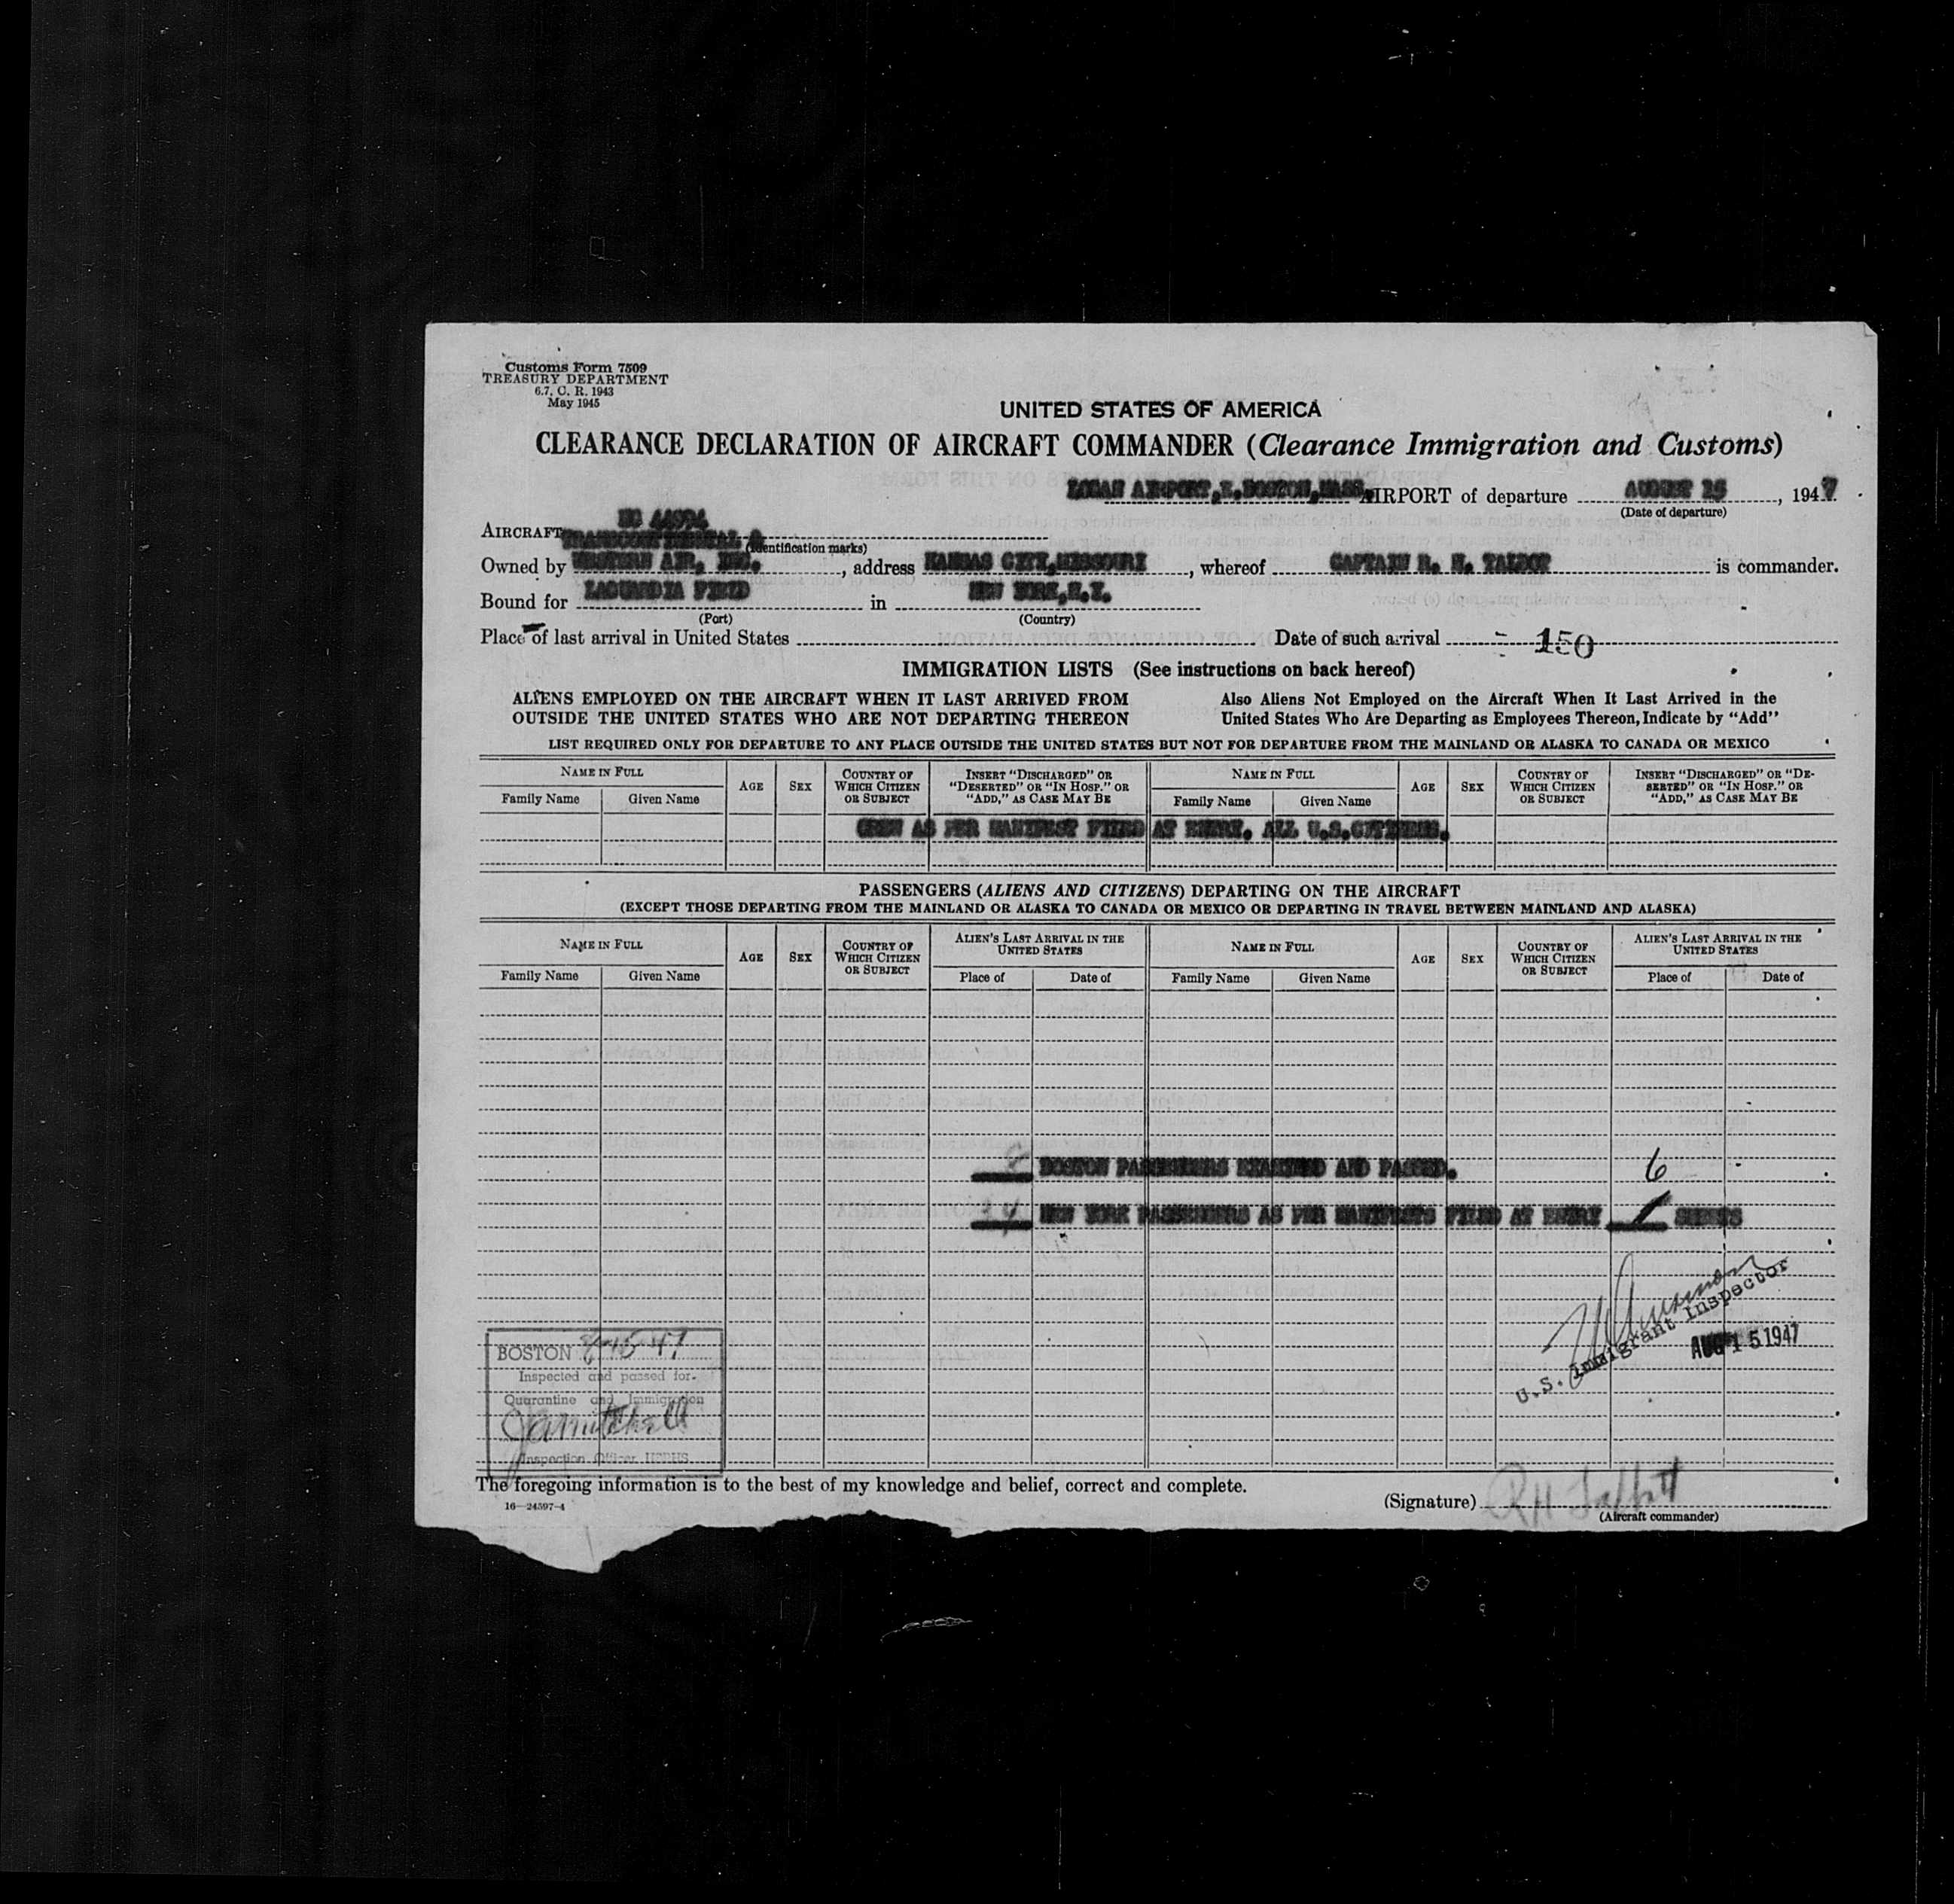 Customs Form 7509
TREASURY DEPARTMENT
6.7, C. R. 1943
May 1945
UNITED STATES OF AMERICA
CLEARANCE DECLARATION OF AIRCRAFT COMMANDER (Clearance Immigration and Customs)
LOGAN AIRPORT, E. BOSTON, MASS. AIRPORT of departure AUGUST 15, 1947
(Date of departure)
AIRCRAFT NC
TRANSCONTINENTAL & (Identification marks)
Owned by WESTERN AIR, INC., address KANSAS CITY, MISSOURI, whereof CAPTAIN R. H. TALBOT is commander.
Bound for LAGUARDIA FIELD in NEW YORK, N.Y.
(Port) (Country)
Place of last arrival in United States Date of such arrival 150
IMMIGRATION LISTS (See instructions on back hereof)
ALIENS EMPLOYED ON THE AIRCRAFT WHEN IT LAST ARRIVED FROM OUTSIDE THE UNITED STATES WHO ARE NOT DEPARTING THEREON
Also Aliens Not Employed on the Aircraft When It Last Arrived in the United States Who Are Departing as Employees Thereon, Indicate by "Add"
LIST REQUIRED ONLY FOR DEPARTURE TO ANY PLACE OUTSIDE THE UNITED STATES BUT NOT FOR DEPARTURE FROM THE MAINLAND OR ALASKA TO CANADA OR MEXICO
NAME IN FULL AGE SEX COUNTRY OF WHICH CITIZEN OR SUBJECT INSERT "DISCHARGED" OR "DESERTED" OR "IN HOSP." OR "ADD," AS CASE MAY BE NAME IN FULL AGE SEX COUNTRY OF WHICH CITIZEN OR SUBJECT INSERT "DISCHARGED" OR "DESERTED" OR "IN HOSP." OR "ADD," AS CASE MAY BE
Family Name Given Name Family Name Given Name
CREW AS PER MANIFEST FILED AT ENTRY. ALL U.S. CITIZENS.
PASSENGERS (ALIENS AND CITIZENS) DEPARTING ON THE AIRCRAFT
(EXCEPT THOSE DEPARTING FROM THE MAINLAND OR ALASKA TO CANADA OR MEXICO OR DEPARTING IN TRAVEL BETWEEN MAINLAND AND ALASKA)
NAME IN FULL AGE SEX COUNTRY OF WHICH CITIZEN OR SUBJECT ALIEN'S LAST ARRIVAL IN THE UNITED STATES NAME IN FULL AGE SEX COUNTRY OF WHICH CITIZEN OR SUBJECT ALIEN'S LAST ARRIVAL IN THE UNITED STATES
Family Name Given Name Place of Date of Family Name Given Name Place of Date of
8 BOSTON PASSENGERS EXAMINED AND PASSED. 6
NEW YORK PASSENGERS AS PER MANIFESTS FILED AT ENTRY SHEETS
U.S. Immigrant Inspector
AUG 15 1947
BOSTON 8-15-47
Inspected and passed for
Quarantine and Immigration
JA Mitchell
Inspection Officer, USPHS
The foregoing information is to the best of my knowledge and belief, correct and complete.
16—24597-4
(Signature) RH Talbott
(Aircraft commander)